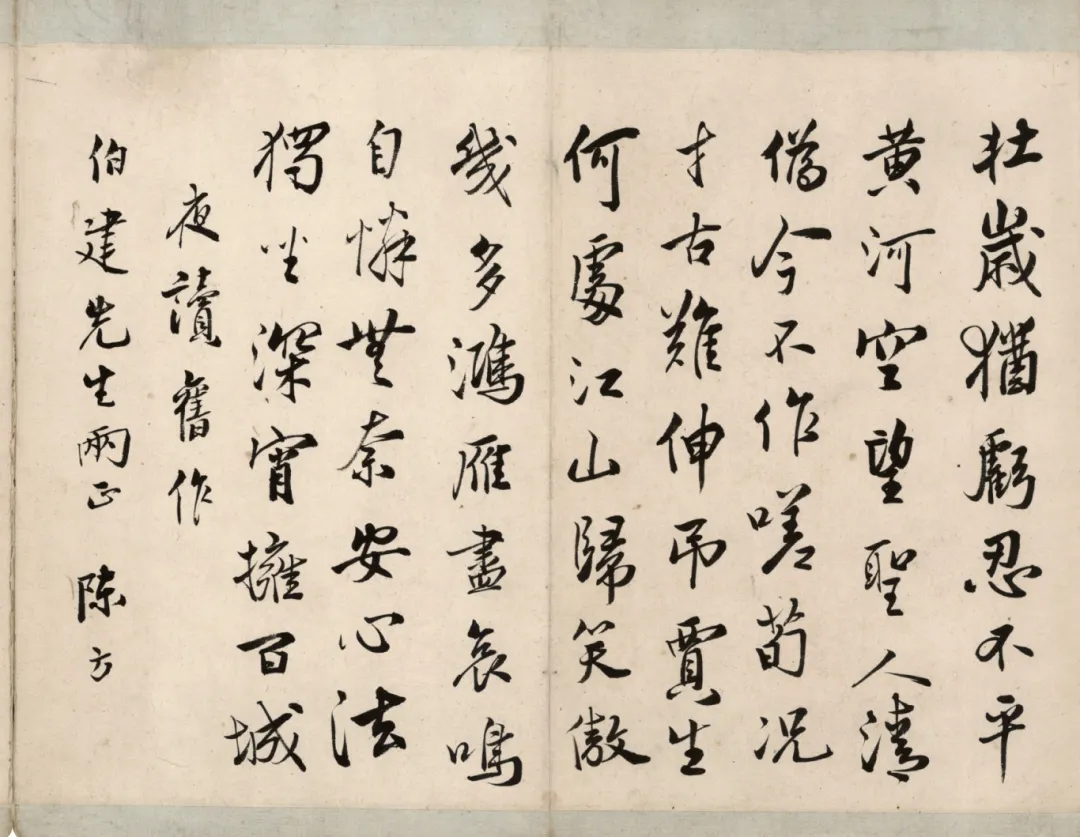 壯歲猶虧忍不平
黃河空望聖人清
儒今不作嗟荀况
才古難伸弔賈生
何處江山歸笑傲
幾多鴻雁盡哀鳴
自憐無奈安心法
獨坐深宵擁百城
夜讀舊作
伯建先生兩正 陳方